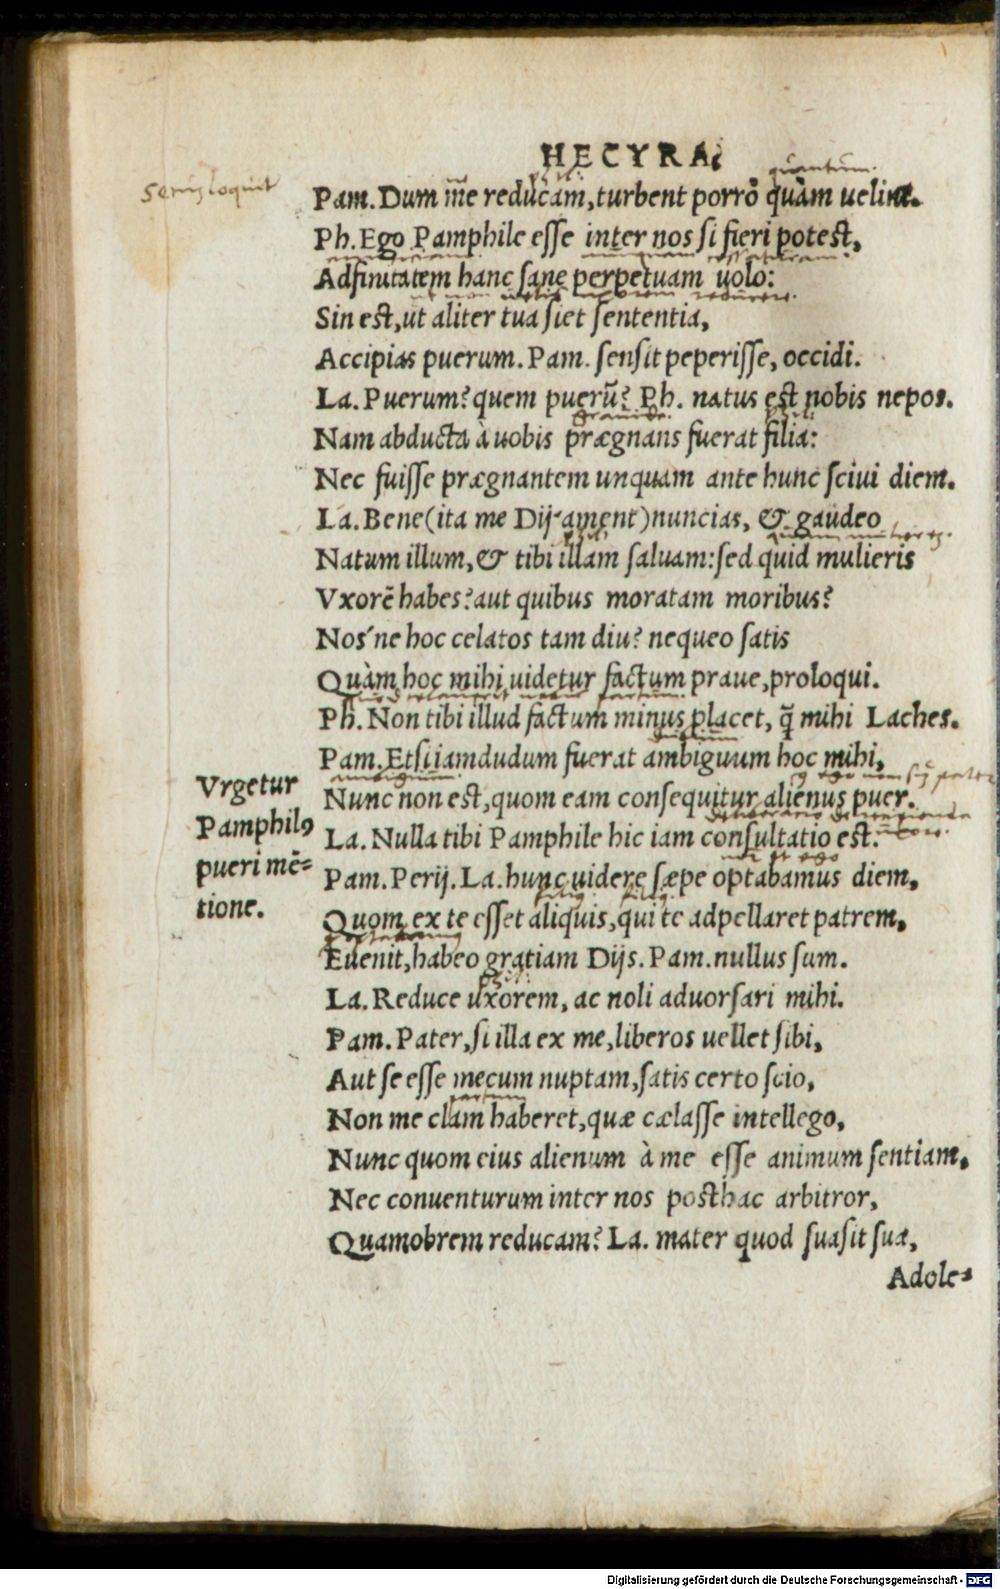 HECYRA.
quantum.
Pam. Dum m̄e reducam, turbent porrò quàm uelint.
Ph. Ego Pamphile esse inter nos si fieri potest,
Adfinitatem hanc sane perpetuam uolo:
Sin est, ut aliter tua siet sententia,
Accipias puerum. Pam. sensit peperisse, occidi.
La. Puerum? quem puerū? Ph. natus est nobis nepos.
Nam abducta à uobis prægnans fuerat filia:
Nec fuisse prægnantem unquam ante hunc sciui diem.
La. Bene (ita me Dij ament) nuncias, & gaudeo
Natum illum, & tibi illam saluam: sed quid mulieris
Vxorē habes? aut quibus moratam moribus?
Nos'ne hoc celatos tam diu? nequeo satis
Quàm hoc mihi uidetur factum praue, proloqui.
Ph. Non tibi illud factum minus placet, q̄ mihi Laches.
Pam. Etsi iamdudum fuerat ambiguum hoc mihi,
Vrgetur
Pamphilo
pueri mē=
tione.
Nunc non est, quom eam consequitur alienus puer.
La. Nulla tibi Pamphile hic iam consultatio est.
Pam. Perij. La. hunc uidere sæpe optabamus diem,
Quom ex te esset aliquis, qui te adpellaret patrem,
Euenit, habeo gratiam Dijs. Pam. nullus sum.
La. Reduce uxorem, ac noli aduorsari mihi.
Pam. Pater, si illa ex me, liberos uellet sibi,
Aut se esse mecum nuptam, satis certo scio,
partum
Non me clam haberet, quæ cælasse intellego,
Nunc quom eius alienum à me esse animum sentiam,
Nec conuenturum inter nos posthac arbitror,
Quamobrem reducam? La. mater quod suasit sua,
Adole=
Digitalisierung gefördert durch die Deutsche Forschungsgemeinschaft - DFG